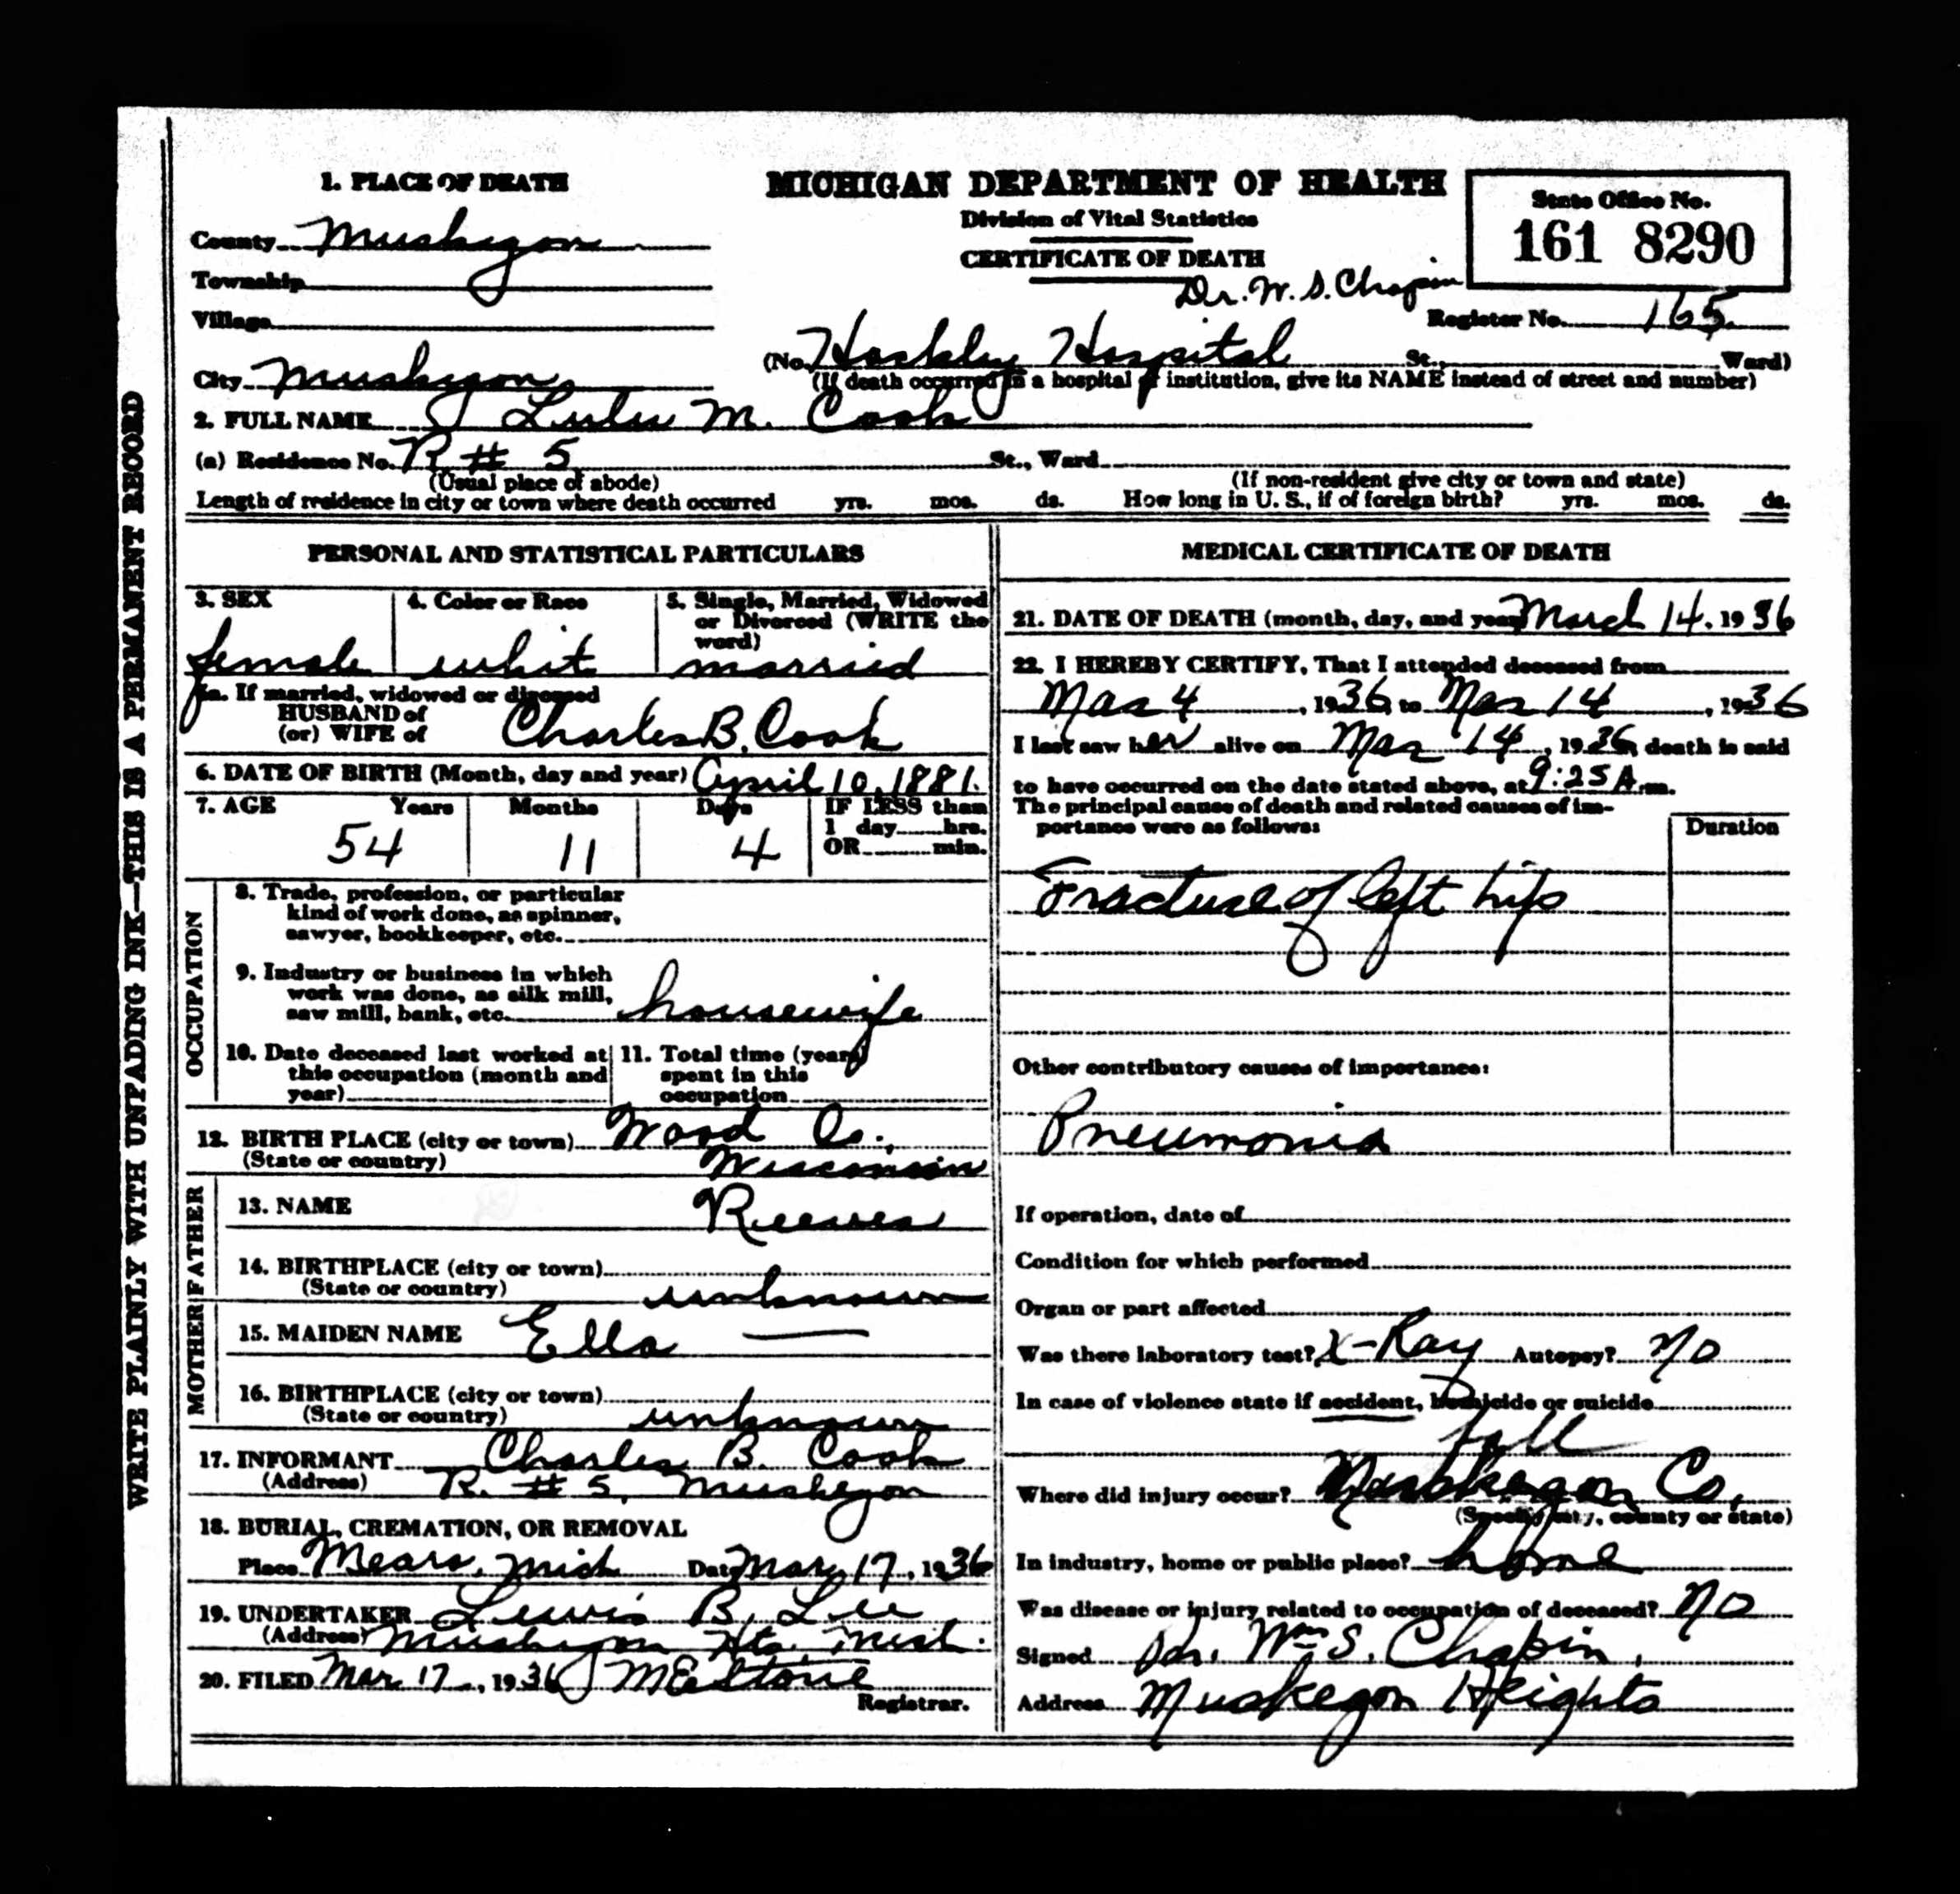 WRITE PLAINLY WITH UNFADING INK—THIS IS A PERMANENT RECORD
1. PLACE OF DEATH
County Muskegon
Township
Village
City Muskegon
MICHIGAN DEPARTMENT OF HEALTH
Division of Vital Statistics
CERTIFICATE OF DEATH
Dr. W. S. Chapin
State Office No.
161 8290
Register No. 165
(No. Hackley Hospital St., Ward)
(If death occurred in a hospital or institution, give its NAME instead of street and number)
2. FULL NAME Lulu M. Cook
(a) Residence No. R # 5 St., Ward
(Usual place of abode) (If non-resident give city or town and state)
Length of residence in city or town where death occurred yrs. mos. ds. How long in U. S., if of foreign birth? yrs. mos. ds.
PERSONAL AND STATISTICAL PARTICULARS
3. SEX
female
4. Color or Race
whit
5. Single, Married, Widowed
or Divorced (WRITE the
word)
married
5a. If married, widowed or divorced
HUSBAND of
(or) WIFE of Charles B. Cook
6. DATE OF BIRTH (Month, day and year) April 10, 1881.
7. AGE Years Months Days IF LESS than
1 day hrs.
54 11 4 OR min.
OCCUPATION
8. Trade, profession, or particular
kind of work done, as spinner,
sawyer, bookkeeper, etc.
9. Industry or business in which
work was done, as silk mill,
saw mill, bank, etc. housewife
10. Date deceased last worked at
this occupation (month and
year)
11. Total time (years)
spent in this
occupation
12. BIRTH PLACE (city or town) Wood Co.,
(State or country) Wisconsin
FATHER
13. NAME Reeves
14. BIRTHPLACE (city or town)
(State or country) unknown
MOTHER
15. MAIDEN NAME Ella —
16. BIRTHPLACE (city or town)
(State or country) unknown
17. INFORMANT Charles B. Cook
(Address) R. # 5, Muskegon
18. BURIAL, CREMATION, OR REMOVAL
Place Mears, Mich Date Mar 17, 1936
19. UNDERTAKER Lewis B. Lee
(Address) Muskegon Hts. Mich.
20. FILED Mar 17, 1936 M E Stone
Registrar.
MEDICAL CERTIFICATE OF DEATH
21. DATE OF DEATH (month, day, and year) March 14, 1936
22. I HEREBY CERTIFY, That I attended deceased from
Mar 4, 1936, to Mar 14, 1936
I last saw her alive on Mar 14, 1936, death is said
to have occurred on the date stated above, at 9:25 A.m.
The principal cause of death and related causes of im-
portance were as follows:
Duration
Fracture of left hip
Other contributory causes of importance:
Pneumonia
If operation, date of
Condition for which performed
Organ or part affected
Was there laboratory test? X-Ray Autopsy? No
In case of violence state if accident, homicide or suicide
fall
Where did injury occur? Muskegon Co.
(Specify city, county or state)
In industry, home or public place? home
Was disease or injury related to occupation of deceased? No
Signed Dr. Wm S. Chapin,
Address Muskegon Heights